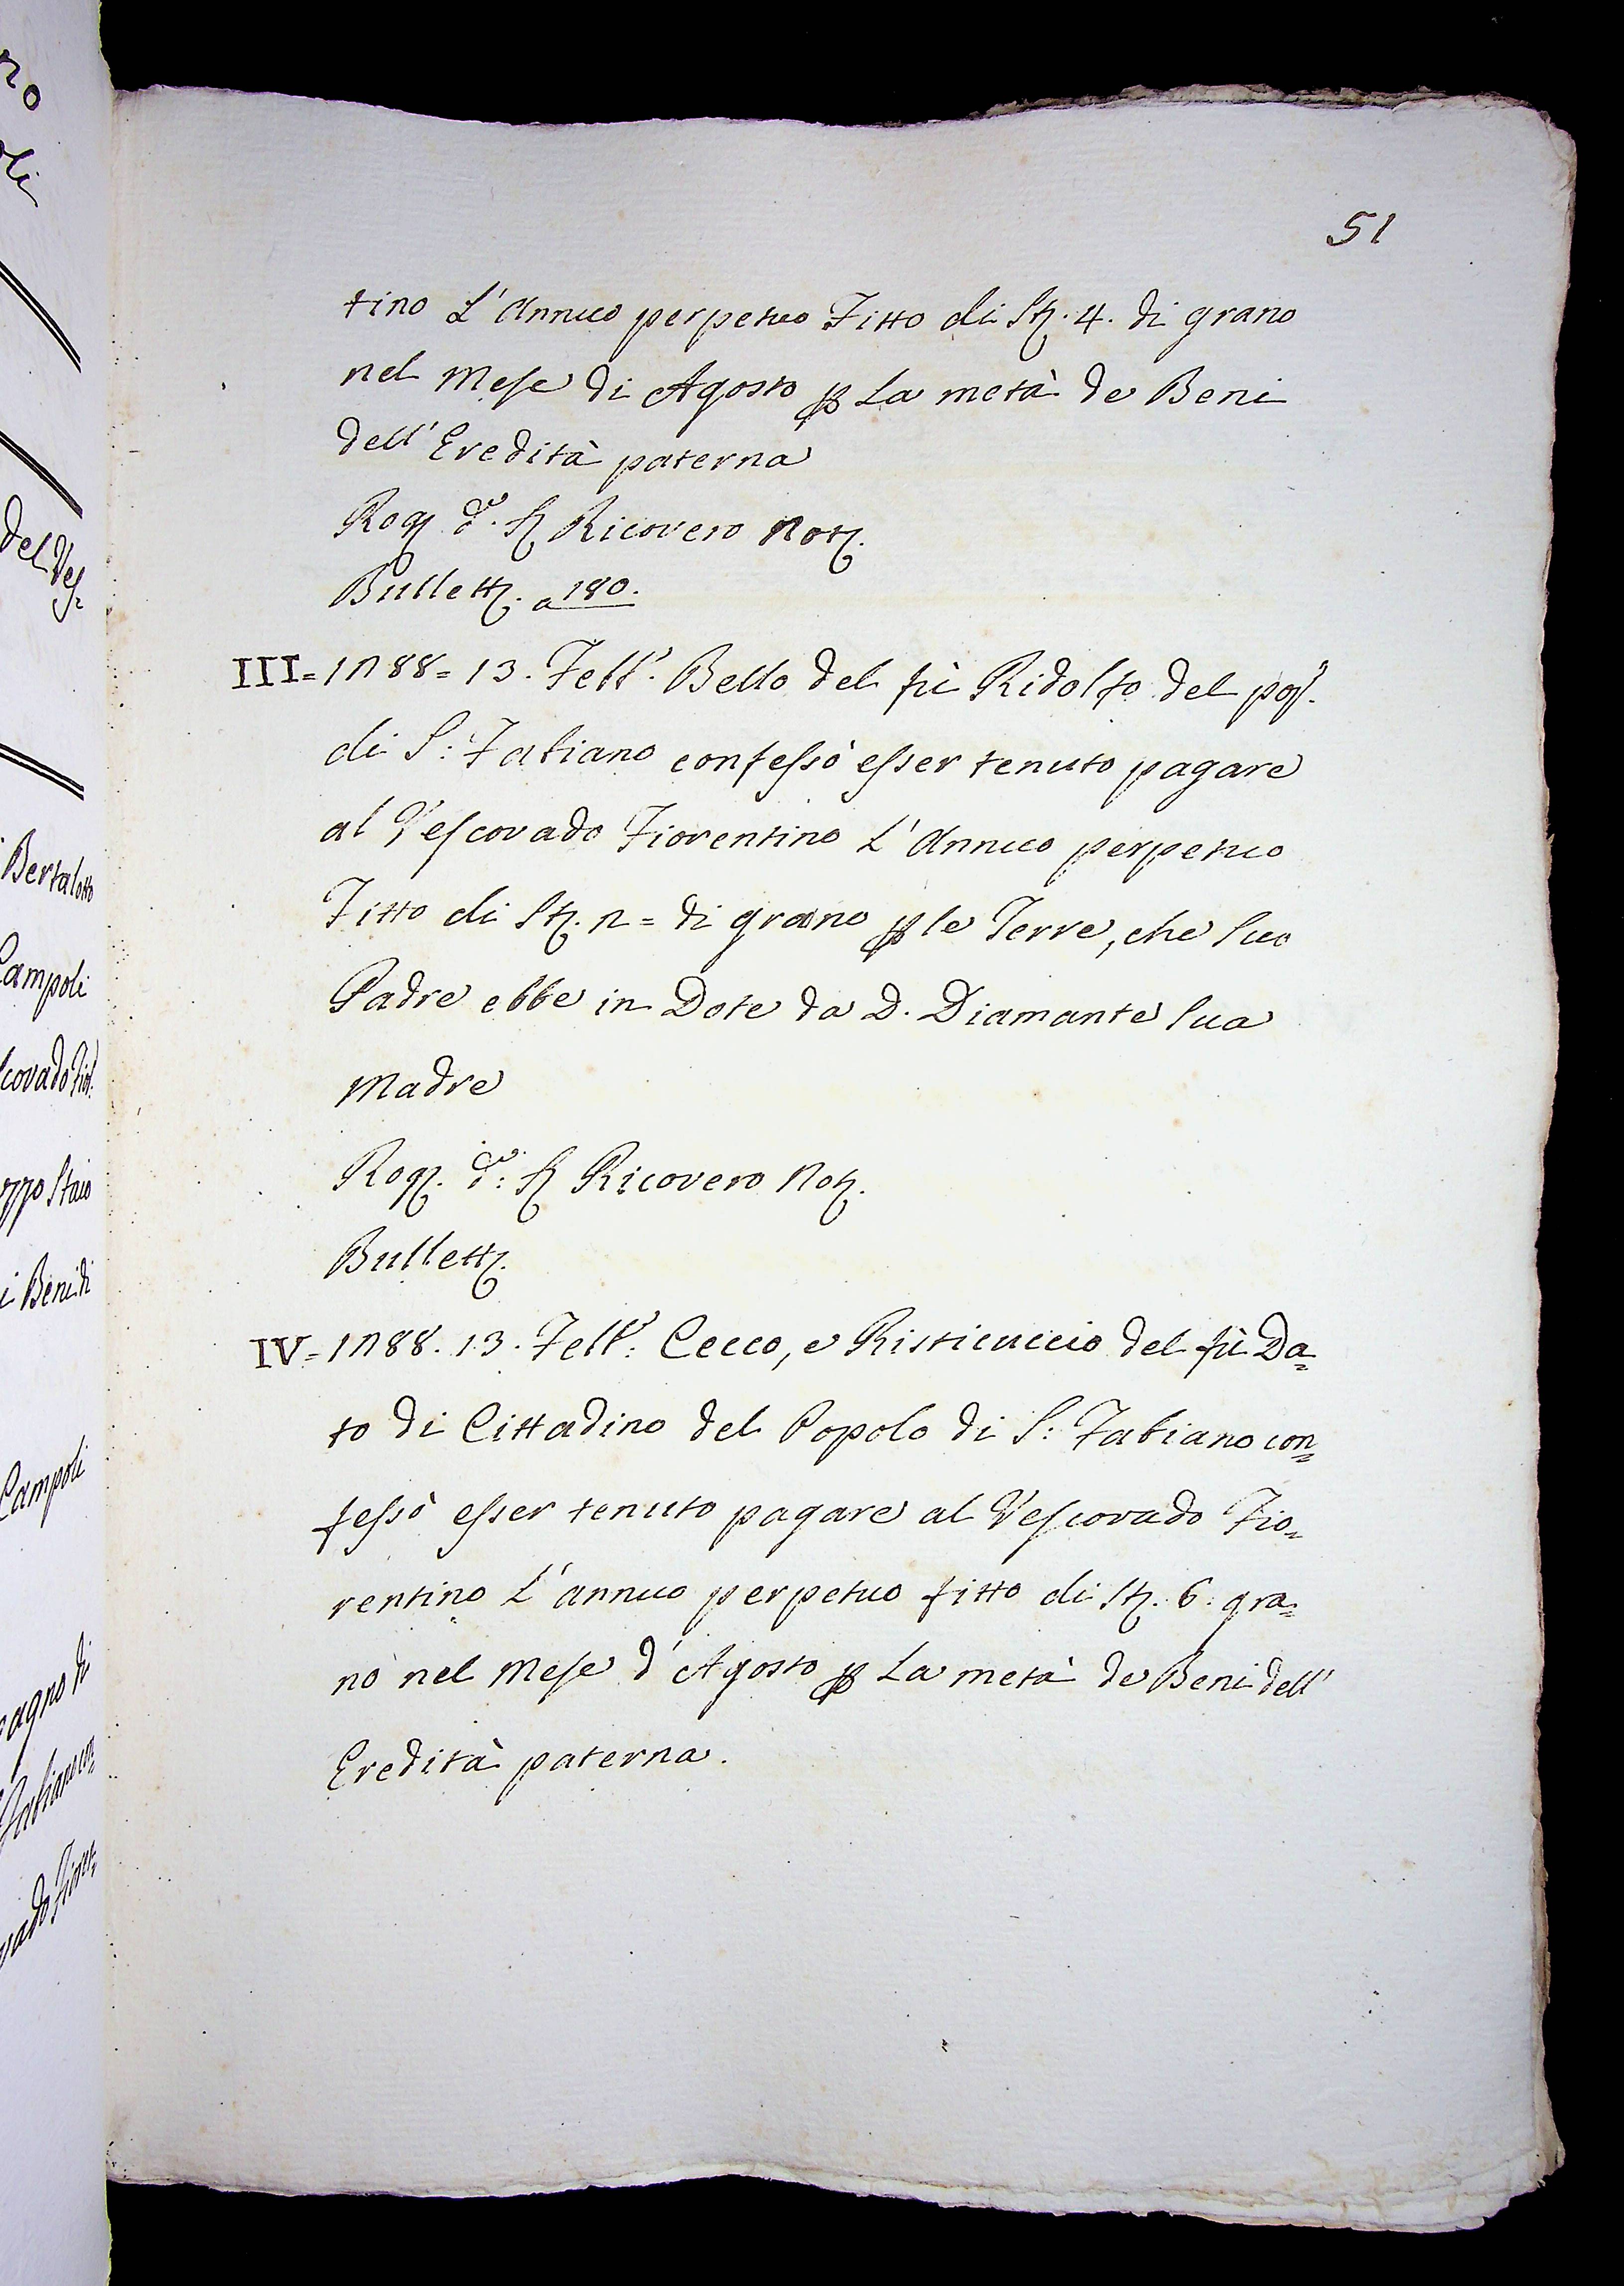 51
tino L'Annuo perpetuo Fitto di St. 4. di grano
nel Mese di Agosto p La metà de Beni
dell'Eredità paterna
Rog. d.º S. Ricovero Not.
Bullett. a 180.
III = 1288 = 13. Febb.º Bello del fù Ridolfo del pop.º
di S: Fabiano confessò esser tenuto pagare
al Vescovado Fiorentino L'Annuo perpetuo
Fitto di St. 2 = di grano p le Terre, che suo
Padre ebbe in Dote da D. Diamante sua
Madre
Rog. d.º: S. Ricovero Not.
Bullett.
IV = 1288. 13. Febb.º: Cecco, e Risticuccio del fù Da=
to di Cittadino del Popolo di S: Fabiano con=
fessò esser tenuto pagare al Vescovado Fio=
rentino L'annuo perpetuo fitto di St. 6. gra=
no nel Mese d'Agosto p La metà de Beni dell'
Eredità paterna.
no
oli
del Ves.
Bertalotto
Campoli
scovado Fior.
ozzo Staio
i Beni di
Campoli
agno di
Fabiano con=
vado Fioren=